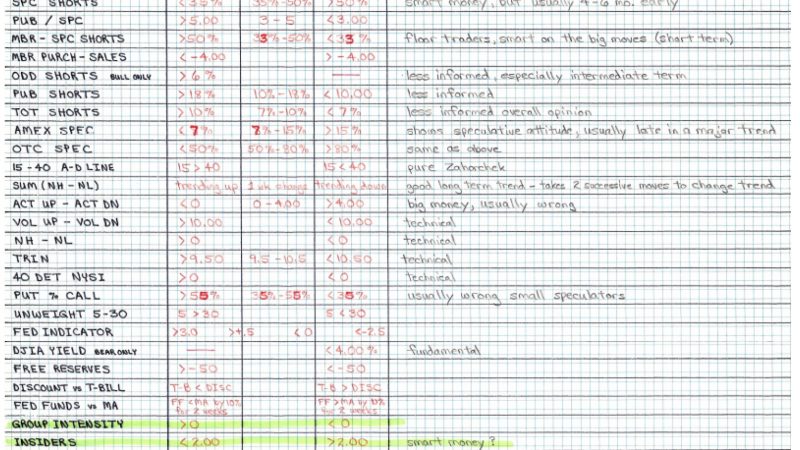 SPC SHORTS <35% 35%-50% >50% smart money, but usually 4-6 mo. early
PUB / SPC >5.00 3 - 5 <3.00
MBR - SPC SHORTS >50% 33%-50% <33% floor traders, smart on the big moves (short term)
MBR PURCH - SALES <-4.00 >-4.00
ODD SHORTS BULL ONLY >6% — less informed, especially intermediate term
PUB SHORTS >18% 10%-18% <10.00 less informed
TOT SHORTS >10% 7%-10% <7% less informed overall opinion
AMEX SPEC <7% 7%-15% >15% shows speculative attitude, usually late in a major trend
OTC SPEC <50% 50%-80% >80% same as above
15 - 40 A-D LINE 15 > 40 15 < 40 pure Zahorchek
SUM (NH - NL) trending up 1 wk change trending down good long term trend - takes 2 successive moves to change trend
ACT UP - ACT DN <0 0 - 4.00 >4.00 big money, usually wrong
VOL UP - VOL DN >10.00 <10.00 technical
NH - NL >0 <0 technical
TRIN >9.50 9.5 - 10.5 <10.50 technical
40 DET NYSI >0 <0 technical
PUT % CALL >55% 35%-55% <35% usually wrong small speculators
UNWEIGHT 5-30 5 > 30 5 < 30
FED INDICATOR >3.0 >+.5 <0 <-2.5
DJIA YIELD BEAR ONLY — <4.00% fundamental
FREE RESERVES >-50 <-50
DISCOUNT vs T-BILL T-B < DISC T-B > DISC
FED FUNDS vs MA FF <MA by 10% for 2 weeks FF >MA by 10% for 2 weeks
GROUP INTENSITY >0 <0
INSIDERS <2.00 >2.00 smart money?